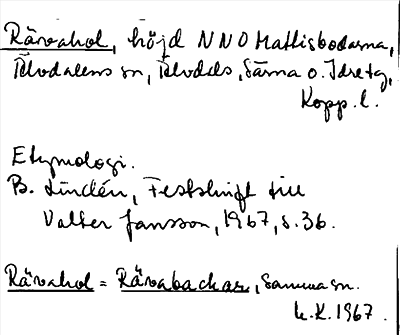 Rävahol, höjd NNO Mattisbodarna,
Älvdalens sn, Älvdals, Särna o. Idre tg,
Kopp. l.
Etymologi.
B. Lindén, Festskrift till
Valter Jansson, 1967, s. 36.
Rävahol = Rävabackar, samma sn.
K.K. 1967.